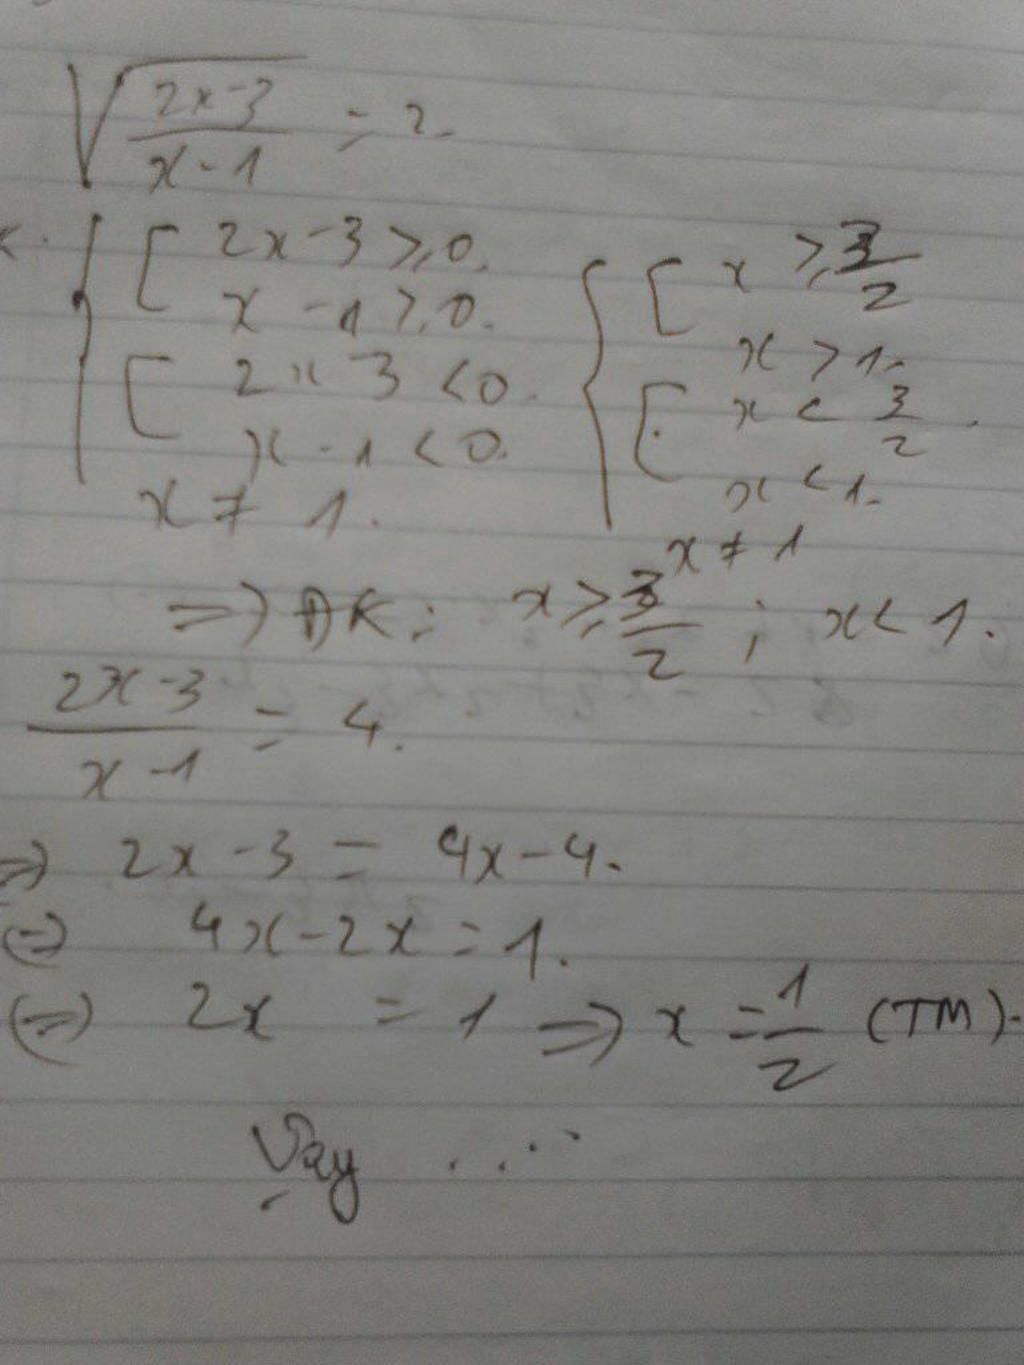 √((2x-3)/(x-1)) = 2.
2x-3 ≥ 0. x ≥ 3/2
x - 1 ≥ 0. x > 1.
2x 3 < 0. x < 3/2.
x - 1 < 0. x < 1.
x ≠ 1. x ≠ 1
=> ĐK: x ≥ 3/2 ; x < 1.
(2x-3)/(x-1) = 4.
=> 2x - 3 = 4x - 4.
(=) 4x - 2x = 1.
(=) 2x = 1 => x = 1/2 (TM).
Vậy ...